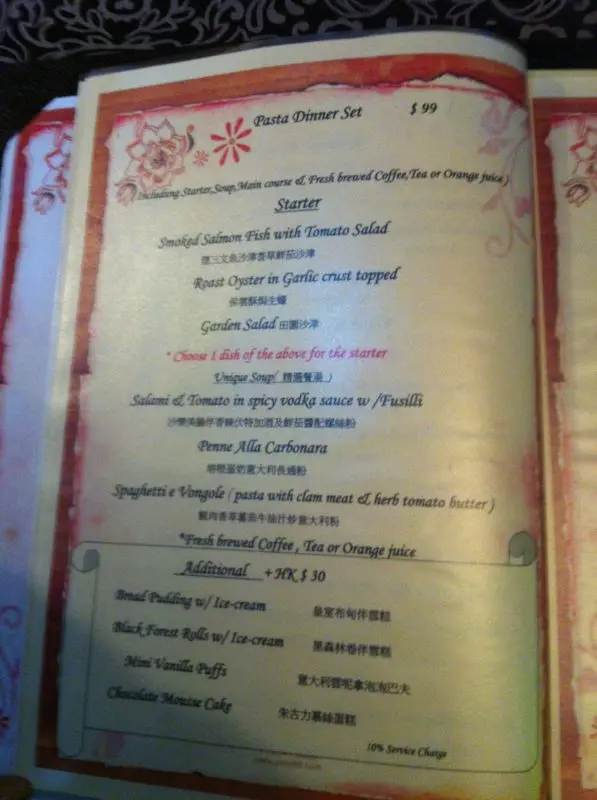 Pasta Dinner Set $ 99
Includsing Starter,Soup,Main course & Fresh brewed Coffee,Tea or Orange juice)
Starter
Smoked Salmon Fish with Tomato Salad
煙三文魚沙律香草鮮茄沙律
Roast Oyster in Garlic crust topped
焗生蠔
Garden Salad 田園沙律
* Choose 1 dish of the above for the starter
Unique Soup( 精選餐湯 )
Salami & Tomato in spicy vodka sauce w /Fusilli
沙樂美腸伴香辣伏特加酒及鮮茄醬配螺絲粉
Penne Alla Carbonara
意大利長通粉
Spaghetti e Vongole ( pasta with clam meat & herb tomato butter )
蜆肉香草蕃茄牛油汁炒意大利粉
*Fresh brewed Coffee , Tea or Orange juice
Additional + HK $ 30
Bread Pudding w/ Ice-cream 皇室布甸伴雪糕
Black Forest Rolls w/ Ice-cream 黑森林卷伴雪糕
Mini Vanilla Puffs 意大利雲呢拿泡泡巴夫
Chocolate Mousse Cake 朱古力慕絲蛋糕
10% Service Charge